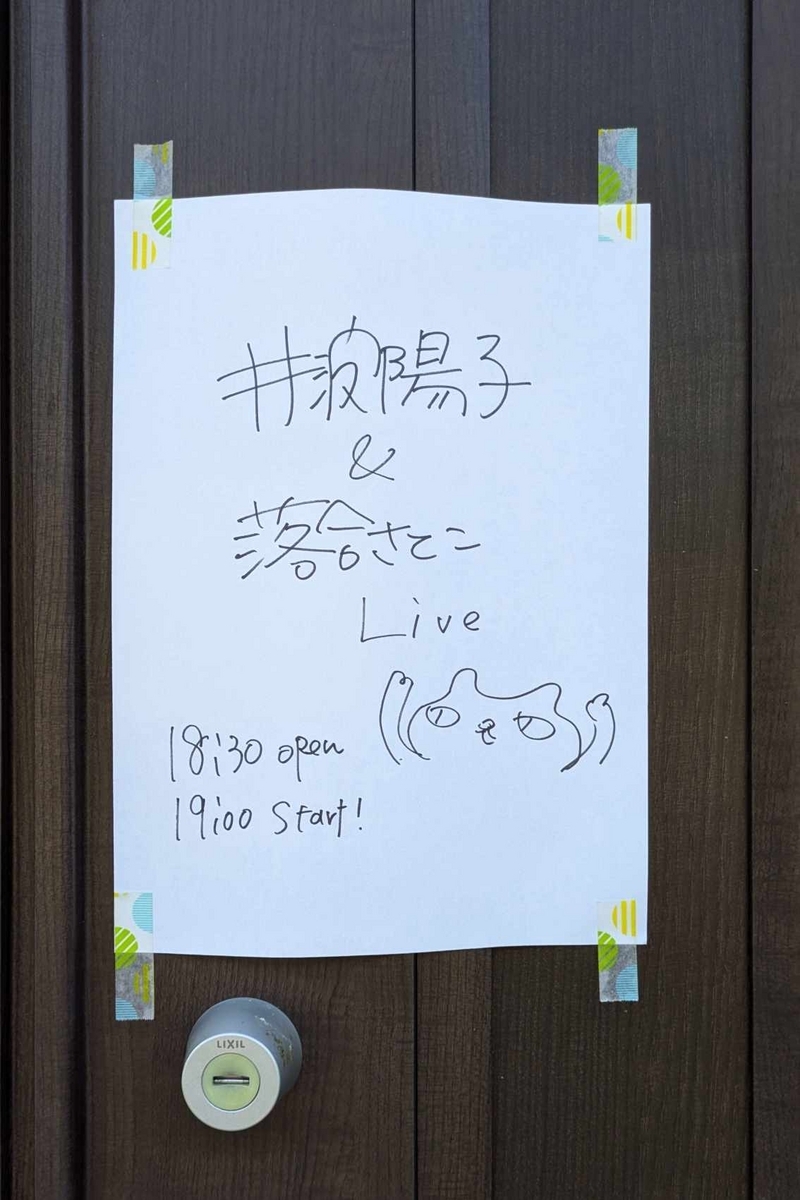 井波陽子
&
落合さとこ
Live
18:30 open
19:00 start!
LIXIL